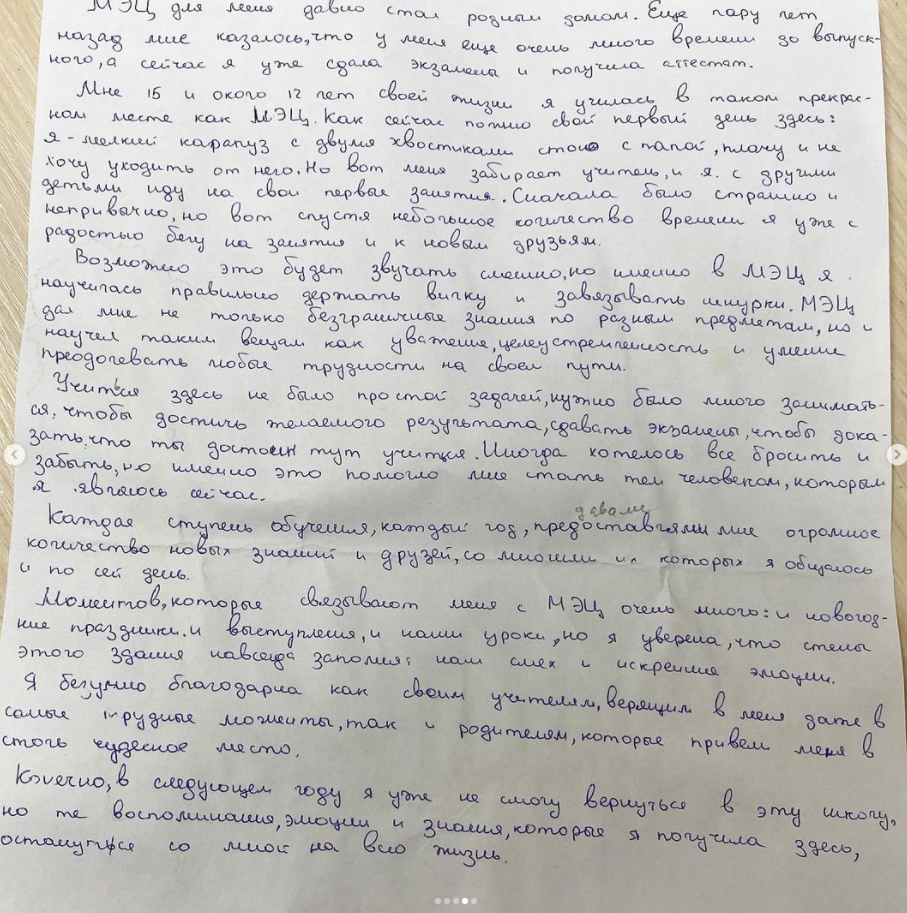 МЭЦ для меня давно стал родным домом. Еще пару лет
назад мне казалось, что у меня еще очень много времени до выпуск-
ного, а сейчас я уже сдала экзамены и получила аттестат.
Мне 15 и около 12 лет своей жизни я училась в таком прекрас-
ном месте как МЭЦ. Как сейчас помню свой первый день здесь:
я - мелкий карапуз с двумя хвостиками стою с папой, плачу и не
хочу уходить от него. Но вот меня забирает учитель, и я с другими
детьми иду на свои первые занятия. Сначала было страшно и
непривычно, но вот спустя небольшое количество времени я уже с
радостью бегу на занятия и к новым друзьям.
Возможно это будет звучать смешно, но именно в МЭЦ я
научилась правильно держать вилку и завязывать шнурки. МЭЦ
дал мне не только безграничные знания по разным предметам, но и
научил таким вещам как уважение, целеустремленность и умение
преодолевать любые трудности на своем пути.
Учиться здесь не было простой задачей, нужно было много занимать-
ся, чтобы достичь желаемого результата, сдавать экзамены, чтобы дока-
зать, что ты достоин тут учиться. Иногда хотелось все бросить и
забыть, но именно это помогло мне стать тем человеком, которым
я являюсь сейчас.
давали
Каждая ступень обучения, каждый год, предоставляли мне огромное
количество новых знаний и друзей, со многими из которых я общаюсь
и по сей день.
Моментов, которые связывают меня с МЭЦ очень много: и новогод-
ние праздники, и выступления, и наши уроки, но я уверена, что стены
этого здания навсегда запомнят наш смех и искренние эмоции.
Я безумно благодарна как своим учителям, верящим в меня даже в
самые трудные моменты, так и родителям, которые привели меня в
столь чудесное место.
Конечно, в следующем году я уже не смогу вернуться в эту школу,
но те воспоминания, эмоции и знания, которые я получила здесь,
останутся со мной на всю жизнь.